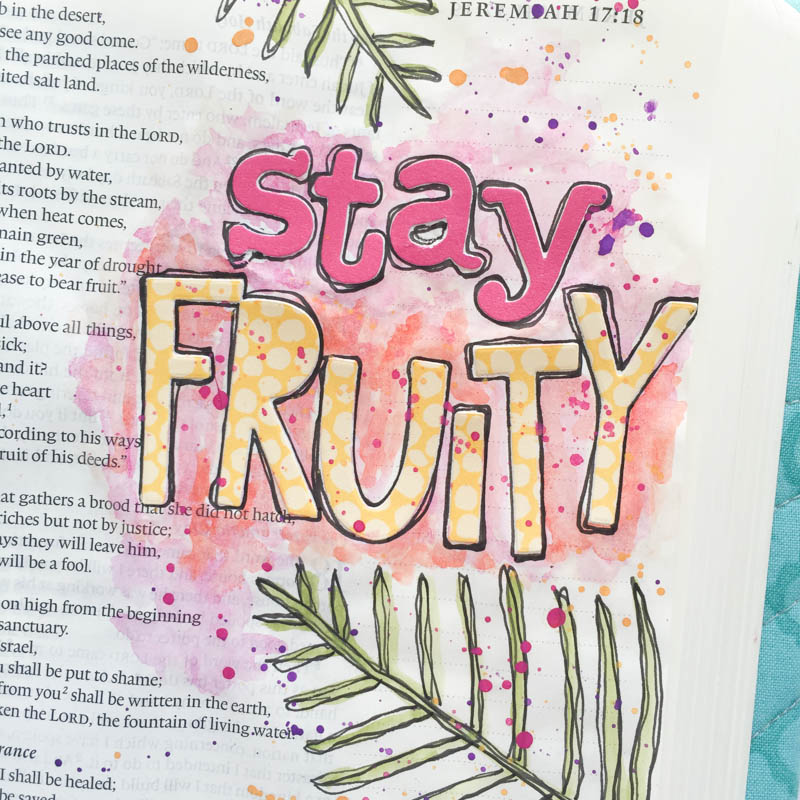 JEREMIAH 17:18
b in the desert,
see any good come.
the parched places of the wilderness,
salt land.
who trusts in the LORD,
the LORD.
by water,
its roots by the stream,
when heat comes,
green,
in the year of drought
to bear fruit.”
above all things,
sick;
and it?
heart
1
according to his ways
fruit of his deeds.”
that gathers a brood that she did not hatch,
riches but not by justice;
they will leave him,
will be a fool.
on high from the beginning
sanctuary.
Israel,
shall be put to shame;
from you² shall be written in the earth,
the LORD, the fountain of living water.
I shall be healed;
be saved
stay
FRUiTY